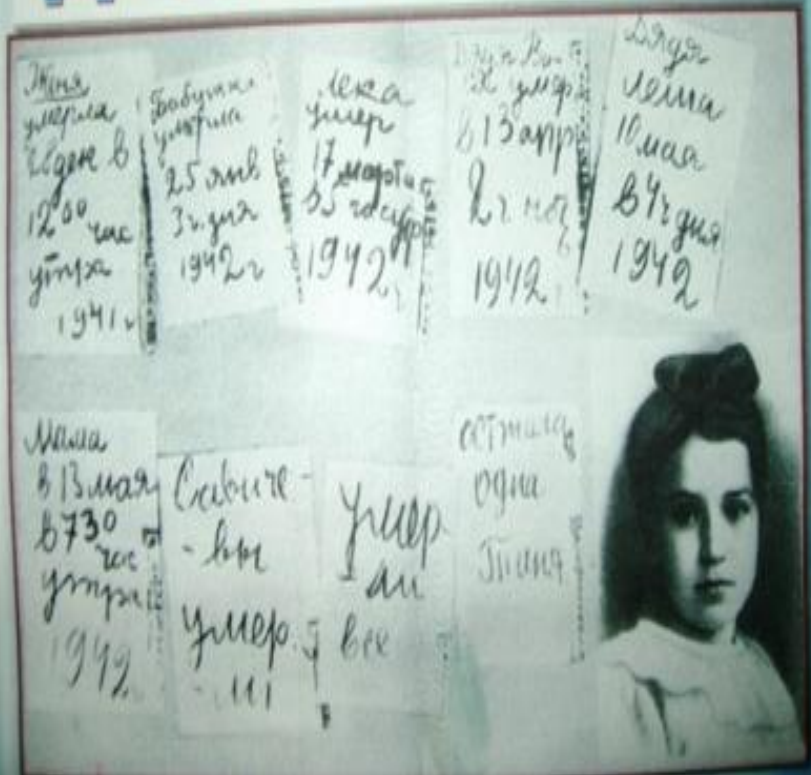 Женя
умерла
28 ден в
12 00 час
утра
1941 г
Бабушка
умерла
25 янв
3 ч. дня
1942 г
Лека
умер
17 марта
в 5 час утр
1942 г
Дядя Ва
умер
в 13 апр
2 ч ноч
1942
Дядя
Леша
10 мая
в 4 ч дня
1942
Мама
в 13 мая
в 7 30
час
утра
1942
Савиче-
-вы
умер
-ли
умер
-ли
все
осталась
одна
Таня